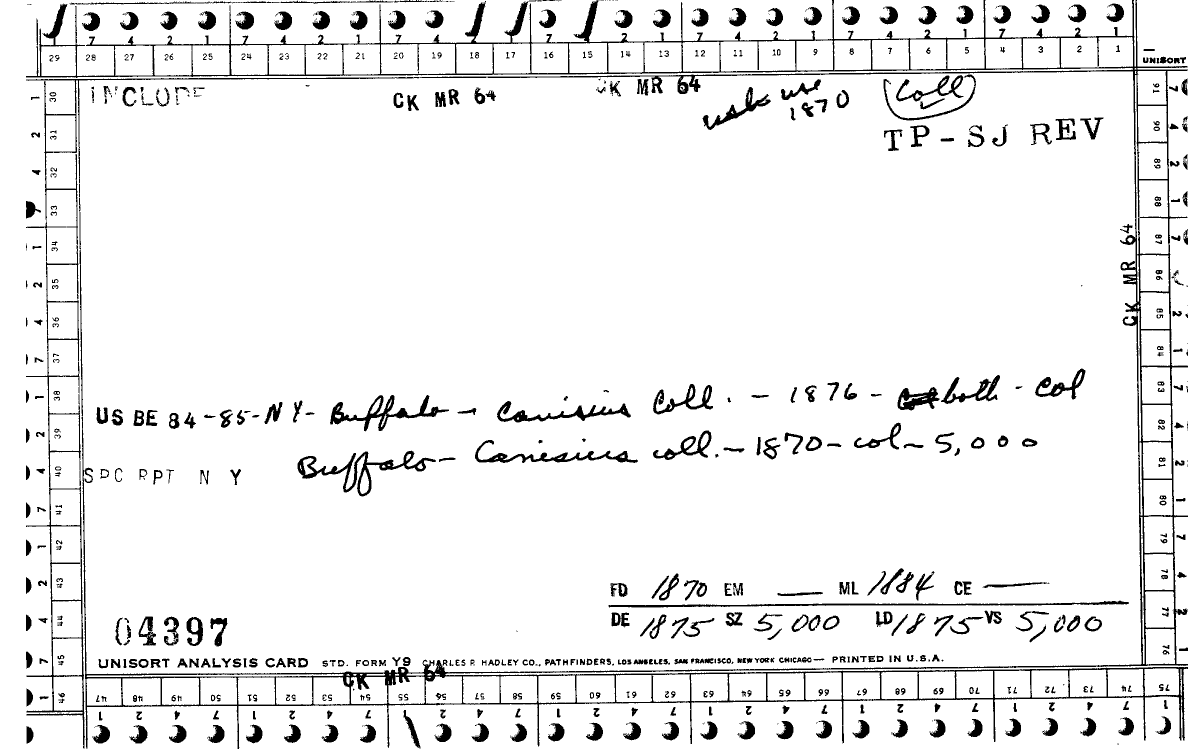 7 4 2 1 7 4 2 1 7 4 2 1 7 4 2 1 7 4 2 1 7 4 2 1
29 28 27 26 25 24 23 22 21 20 19 18 17 16 15 14 13 12 11 10 9 8 7 6 5 4 3 2 1
UNISORT
INCLUDE
CK MR 64
CK MR 64
use 1870
Coll
TP-SJ REV
CK MR 64
US BE 84-85-NY- Buffalo - Canisius Coll. - 1876 - both - col
SPC RPT N Y Buffalo - Canisius coll. - 1870 - col - 5,000
FD 1870 EM — ML 1884 CE —
DE 1875 SZ 5,000 LD 1875 VS 5,000
04397
UNISORT ANALYSIS CARD STD. FORM Y9 CHARLES R. HADLEY CO., PATHFINDERS, LOS ANGELES, SAN FRANCISCO, NEW YORK CHICAGO — PRINTED IN U.S.A.
CK MR 64
30 31 32 33 34 35 36 37 38 39 40 41 42 43 44 45 46
47 48 49 50 51 52 53 54 55 56 57 58 59 60 61 62 63 64 65 66 67 68 69 70 71 72 73 74 75
91 90 89 88 87 86 85 84 83 82 81 80 79 78 77 76